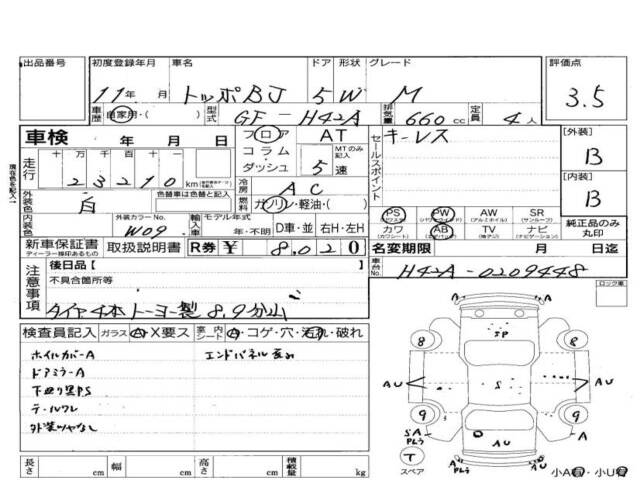 出品番号 初度登録年月 車名 ドア 形状 グレード 評価点
11年 月 トッポBJ 5 W M 3.5
車歴 自家用・( ) 型式 GF-H42A 排気量 660cc 定員 4人
車検 年 月 日 フロア AT キーレス 外装 B
コラム MTのみ記入 セールスポイント
走行 十 万 千 百 十 一 23210 km ダッシュ 5速
冷房 AC 内装 B
外装色 白 色替車は色替と記入 燃料 ガソリン・軽油・( )
PS PW AW SR
(パワステ) (パワーウインド) (アルミホイル) (サンルーフ)
内装色 外装カラーNo. W09 輸入車 モデル年式 年・不明 D車・並 右H・左H
カワ AB TV ナビ 純正品のみ丸印
(カワシート) (エアバック) (ナビゲーション)
新車保証書 取扱説明書 R券 ¥ 8,020 名変期限 月 日迄
ディーラー様印あるもの
車台No. H42A-0209448
後日品【 】
注意事項 不具合箇所等
タイヤ4本トーヨー製 8,9分山
ロック車
検査員記入 ガラス A・X要ス 室内シート A・コゲ・穴・汚れ・破れ
ホイルカバーA エンドパネル歪み
ドアミラーA
下廻り黒PS
テールワレ
外装ツヤなし
A A
SP
8 8
AU S AU
9 9
SA
A
T AU
スペア
小A有・小U有
長さ cm 幅 cm 高さ cm 積載量 kg
現在色を記入